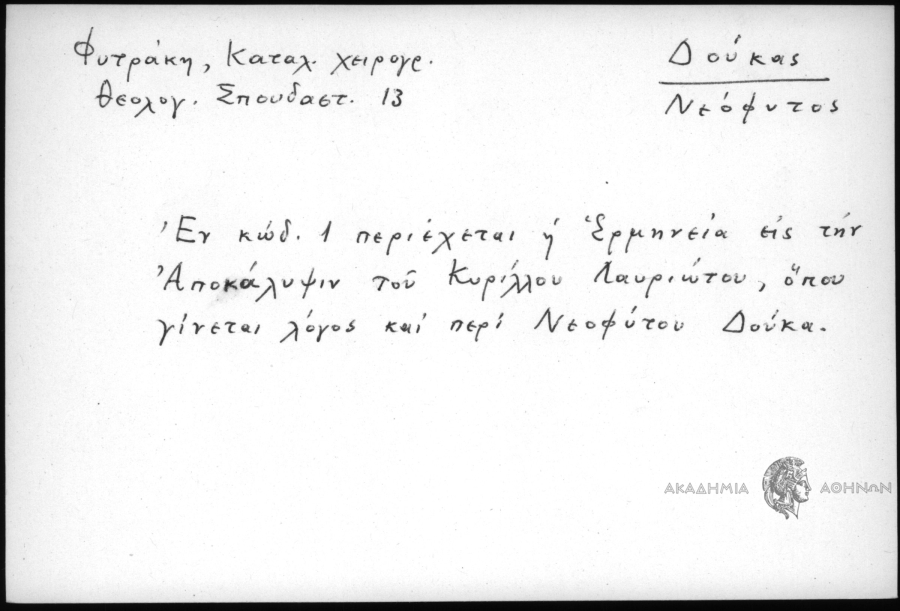 Φυτράκη, Καταλ. χειρογρ.
Θεολογ. Σπουδαστ. 13
Δούκας
Νεόφυτος
Ἐν κώδ. 1 περιέχεται ἡ Ἑρμηνεία εἰς τήν
Ἀποκάλυψιν τοῦ Κυρίλλου Λαυριώτου, ὅπου
γίνεται λόγος καί περί Νεοφύτου Δούκα.
ΑΚΑΔΗΜΙΑ ΑΘΗΝΩΝ